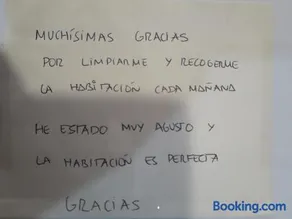 MUCHÍSIMAS GRACIAS
POR LIMPIARME Y RECOGERME
LA HABITACIÓN CADA MAÑANA
HE ESTADO MUY AGUSTO Y
LA HABITACIÓN ES PERFECTA
GRACIAS
Booking.com